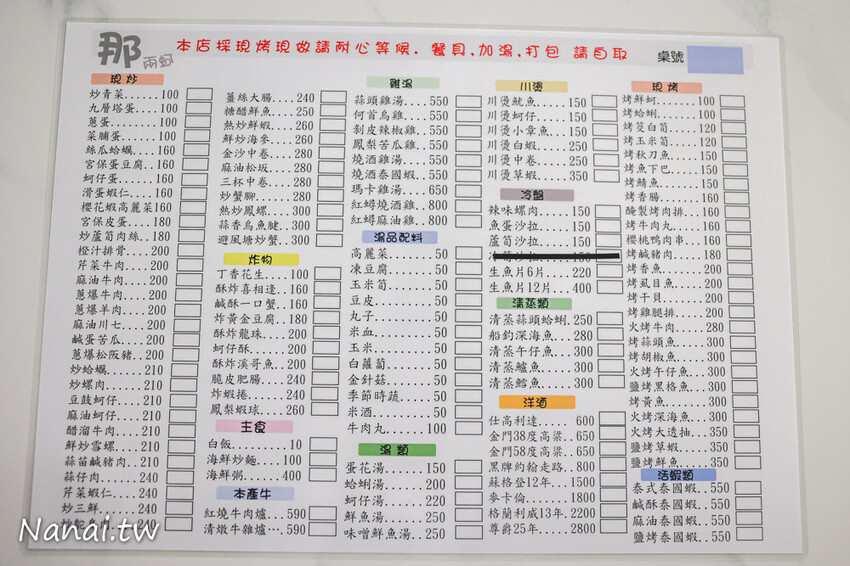 那
兩蚵
本店採現烤現做請耐心等候.餐具,加湯,打包 請自取
桌號
現炒
炒青菜......100
九層塔蛋...100
蔥蛋..........100
菜脯蛋......100
絲瓜蛤蠣....160
宮保蛋豆腐..160
蚵仔蛋......160
滑蛋蝦仁...160
櫻花蝦高麗菜160
宮保皮蛋...180
炒蘆筍肉絲..180
橙汁排骨...200
芹菜牛肉...200
麻油牛肉...200
蔥爆牛肉...200
蔥爆羊肉...200
麻油川七...200
鹹蛋苦瓜...200
蔥爆松阪豬..200
炒蛤蠣......210
炒螺肉......210
豆鼓蚵仔...210
麻油蚵仔...210
醋溜牛肉...210
鮮炒雪螺...210
蒜苗鹹豬肉..210
蒜仔肉......240
芹菜蝦仁...240
炒三鮮......240
薑絲大腸....240
糖醋鮮魚....250
熱炒鮮蝦....260
鮮炒海參....260
金沙中卷....280
麻油松坂....280
三杯中卷....280
炒蟹腳......280
熱炒鳳螺....300
蒜香烏魚腱..300
避風塘炒蟹..300
炸物
丁香花生....100
酥炸喜相逢..160
鹹酥一口蟹..160
炸黃金豆腐..180
酥炸龍珠....200
蚵仔酥......200
酥炸溪哥魚..200
脆皮肥腸....240
炸蝦捲......240
鳳梨蝦球....260
主食
白飯.........10
海鮮炒麵....100
海鮮粥......400
本產牛
紅燒牛肉爐...590
清燉牛雜爐...590
雞湯
蒜頭雞湯....550
何首烏雞....550
剝皮辣椒雞..550
鳳梨苦瓜雞..550
燒酒雞湯....550
燒酒泰國蝦..550
瑪卡雞湯....650
紅蟳燒酒雞..800
紅蟳麻油雞..800
湯品配料
高麗菜......50
凍豆腐......50
玉米筍......50
豆皮.........50
丸子.........50
米血.........50
玉米.........50
白蘿蔔......50
金針菇......50
季節時蔬....50
米酒.........50
牛肉丸......100
湯類
蛋花湯......150
蛤蜊湯......200
蚵仔湯......220
鮮魚湯......250
味噌鮮魚湯..250
川燙
川燙魷魚....150
川燙蚵仔....150
川燙小章魚..150
川燙白蝦....250
川燙中卷....250
川燙草蝦....350
冷盤
辣味螺肉....150
魚蛋沙拉....150
蘆筍沙拉....150
生魚片6片...220
生魚片12片..400
清蒸類
清蒸蒜頭蛤蜊.250
船釣深海魚..280
清蒸午仔魚..300
清蒸鱸魚....300
清蒸鱈魚....300
洋酒
仕高利達.... 600
金門38度高粱..650
金門58度高粱..650
黑牌約翰走路..800
蘇格登12年...1500
麥卡倫......1800
格蘭利威13年.2200
尊爵25年....2800
現烤
烤鮮蚵......100
烤蛤蜊......100
烤筊白筍....120
烤玉米筍....120
烤秋刀魚....150
烤魚下巴....150
烤鯖魚......150
烤香腸......160
醃製烤肉排..160
烤牛肉丸....160
櫻桃鴨肉串..160
烤鹹豬肉....180
烤香魚......200
烤虱目魚....200
烤干貝......200
烤雞腿排....200
火烤牛肉....280
烤蒜頭魚....300
烤胡椒魚....300
火烤午仔魚..300
鹽烤黑格魚..300
烤黃魚......300
火烤深海魚..300
火烤大透抽..350
鹽烤草蝦....350
鹽烤鮮魚....350
活蝦類
泰式泰國蝦..550
鹹酥泰國蝦..550
麻油泰國蝦..550
鹽烤泰國蝦..550
Nanai.tw